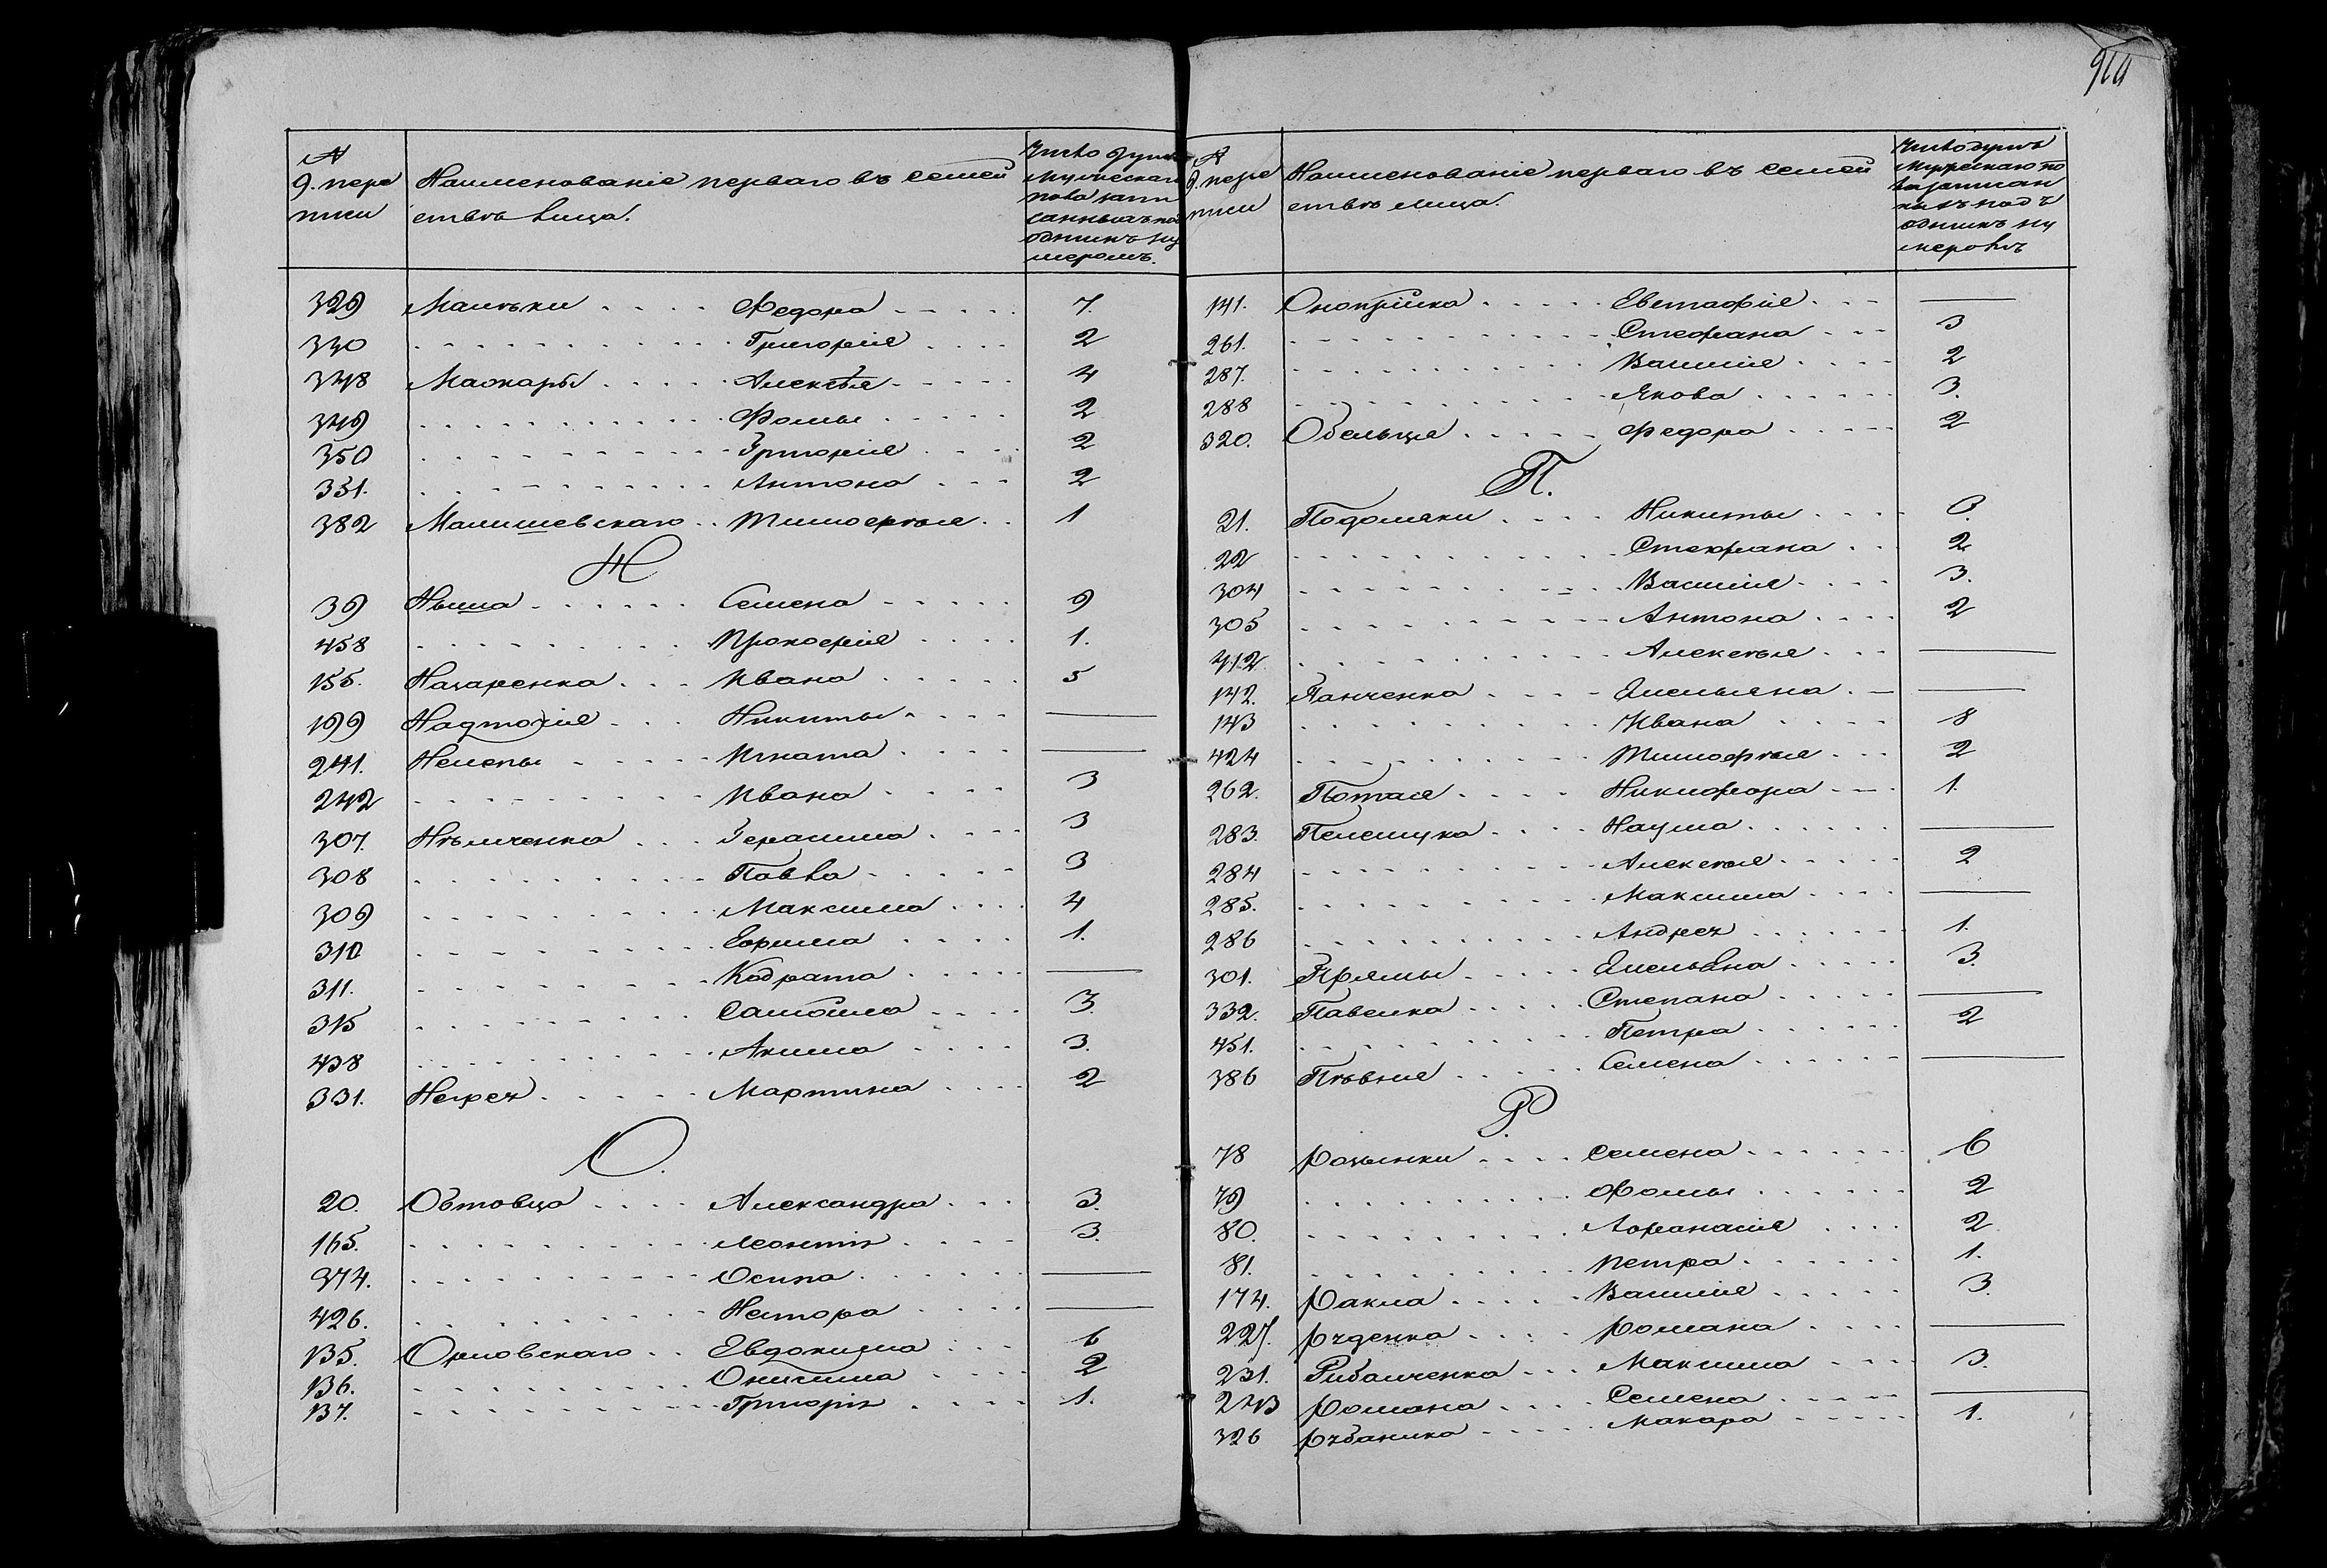 № 9. пере писи
Наименованіе перваго въ семей ствѣ лица.
Число душъ мужескаго пола запи санныхъ подъ однимъ ну меромъ.
329 Малѣки Федора 7.
330 Григорія 2
348 Макаръ Алексѣя 4
349 Фомы 2
350 Григорія 2
351. Антона 2
382 Малишевскаго Тимофѣя 1
Н
39 Семена 9
458 Прокофія 1.
155. Назаренка Ивана 5
199 Надточія Никиты —
241. Нелепы Игната —
242 Ивана 3
307. Нѣмченка Герасима 3
308 Павла 3
309 Максима 4
310 Ефима 1.
311. Кодрата —
315 Самойла 3.
438 Акима 3.
331. Негрея Мартина 2
О.
20. Обтовца Александра 3.
165. Леонтія 3.
374. Осипа —
426. Нестора —
135. Орловскаго Евдокима 6
136. Онисима 2
137. Григорія 1.
№ 9. пере писи
Наименованіе перваго въ семей ствѣ лица.
Число душъ мужескаго по ла записан ныхъ подъ однимъ ну меромъ
141. Онопрійка Евстафія —
261. Стефана 3
287. Василія 2
288 Якова 3.
320. Обельця Федора 2
П.
21. Подоляки Никиты
22 Стефана 2
304 Василія 3.
305 Антона 2
412. Алексѣя —
142. Панченка Емельяна —
143 Ивана 8
424 Тимофѣя 2
262. Потая Никифора 1.
283. Пелещука Наума —
284 Алексѣя 2
285. Максима —
286 Андрея 1.
301. Прямы Емельяна 3.
332. Павелка Степана —
451. Петра 2
386 Пѣвня Семена —
Р.
78 Семена 6
79 Фомы 2
80. Афанасія 2
81. Петра 1.
174. Ракла Василія 3.
227. Руденка Романа —
231. Рибалченка Максима 3.
243 Романа Семена —
326 Макара 1.